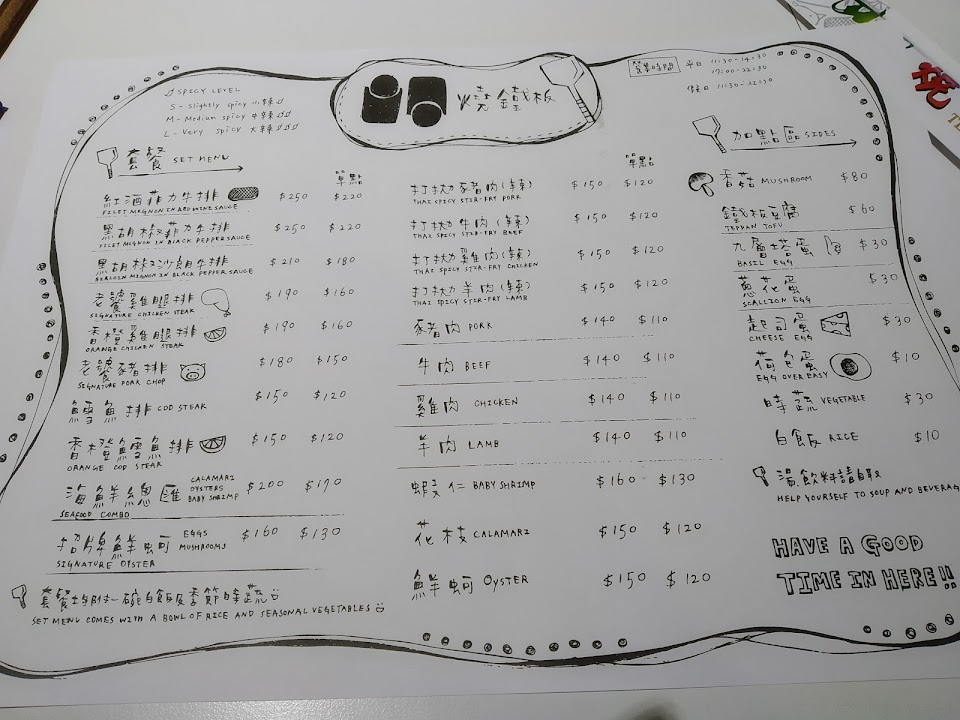 SPICY LEVEL
S - Slightly spicy 小辣
M - Medium spicy 中辣
L - Very spicy 大辣
燒鐵板
營業時間 平日 11:30-14:30
17:00-22:30
假日 11:30-22:30
套餐 SET MENU
單點
紅酒菲力牛排 $250 $220
FILET MIGNON IN RED WINE SAUCE
黑胡椒菲力牛排 $250 $220
FILET MIGNON IN BLACK PEPPER SAUCE
黑胡椒沙朗牛排 $210 $180
SIRLOIN MIGNON IN BLACK PEPPER SAUCE
老饕雞腿排 $190 $160
SIGNATURE CHICKEN STEAK
香橙雞腿排 $190 $160
ORANGE CHICKEN STEAK
老饕豬排 $180 $150
SIGNATURE PORK CHOP
鱈魚排 COD STEAK $150 $120
香橙鱈魚排 $150 $120
ORANGE COD STEAK
海鮮總匯 CALAMARI OYSTERS BABY SHRIMP $200 $170
SEAFOOD COMBO
招牌鮮蚵 EGGS MUSHROOMS $160 $130
SIGNATURE OYSTER
套餐均附一碗白飯及季節時蔬
SET MENU COMES WITH A BOWL OF RICE AND SEASONAL VEGETABLES
單點
打拋豬肉(辣) $150 $120
THAI SPICY STIR-FRY PORK
打拋牛肉(辣) $150 $120
THAI SPICY STIR-FRY BEEF
打拋雞肉(辣) $150 $120
THAI SPICY STIR-FRY CHICKEN
打拋羊肉(辣) $150 $120
THAI SPICY STIR-FRY LAMB
豬肉 PORK $140 $110
牛肉 BEEF $140 $110
雞肉 CHICKEN $140 $110
羊肉 LAMB $140 $110
蝦仁 BABY SHRIMP $160 $130
花枝 CALAMARI $150 $120
鮮蚵 OYSTER $150 $120
加點區 SIDES
香菇 MUSHROOM $80
鐵板豆腐 $60
TEPPAN TOFU
九層塔蛋 $30
BASIL EGG
蔥花蛋 $30
SCALLION EGG
起司蛋 $30
CHEESE EGG
荷包蛋 $10
EGG OVER EASY
時蔬 VEGETABLE $30
白飯 RICE $10
湯飲料請自取
HELP YOURSELF TO SOUP AND BEVERAG
HAVE A GOOD
TIME IN HERE!!